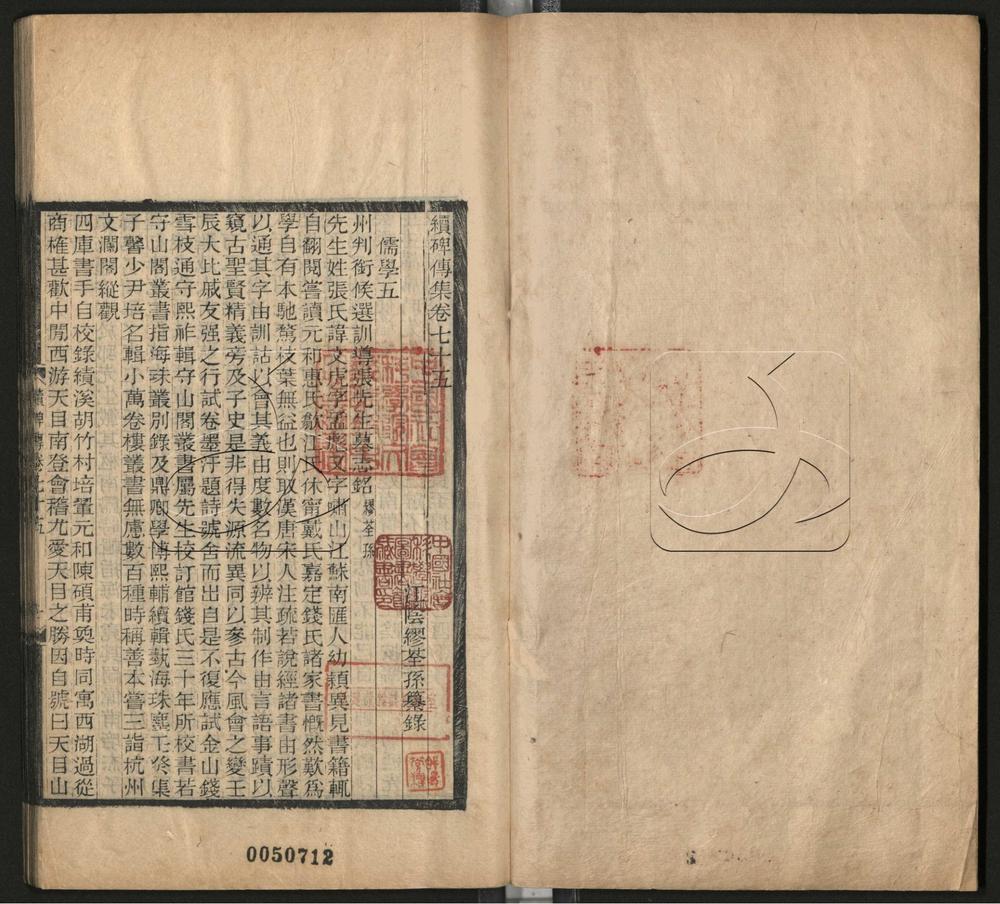 續碑傳集卷七十五
江陰繆荃孫纂錄
儒學五
州判銜候選訓導張先生墓志銘 繆荃孫
先生姓張氏諱文虎字孟彪又字嘯山江蘇南匯人幼穎異見書籍輒
自翻閱嘗讀元和惠氏歙江氏休甯戴氏嘉定錢氏諸家書慨然歎爲
學自有本馳騖枝葉無益也則取漢唐宋人注疏若說經諸書由形聲
以通其字由訓詁以會其義由度數名物以辨其制作由言語事蹟以
窺古聖賢精義旁及子史是非得失源流異同以參古今風會之變壬
辰大比戚友强之行試卷墨汙題詩號舍而出自是不復應試金山錢
雪枝通守熙祚輯守山閣叢書屬先生校訂館錢氏三十年所校書若
守山閣叢書指海珠叢別錄及鼎卿學博熙輔續輯藝海珠塵壬癸集
子馨少尹培名輯小萬卷樓叢書無慮數百種時稱善本嘗三詣杭州
文瀾閣縱觀
四庫書手自校錄績溪胡竹村培翬元和陳碩甫奐時同寓西湖過從
商榷甚歡中閒西游天目南登會稽尤愛天目之勝因自號曰天目山
續碑傳卷七十五
0050712